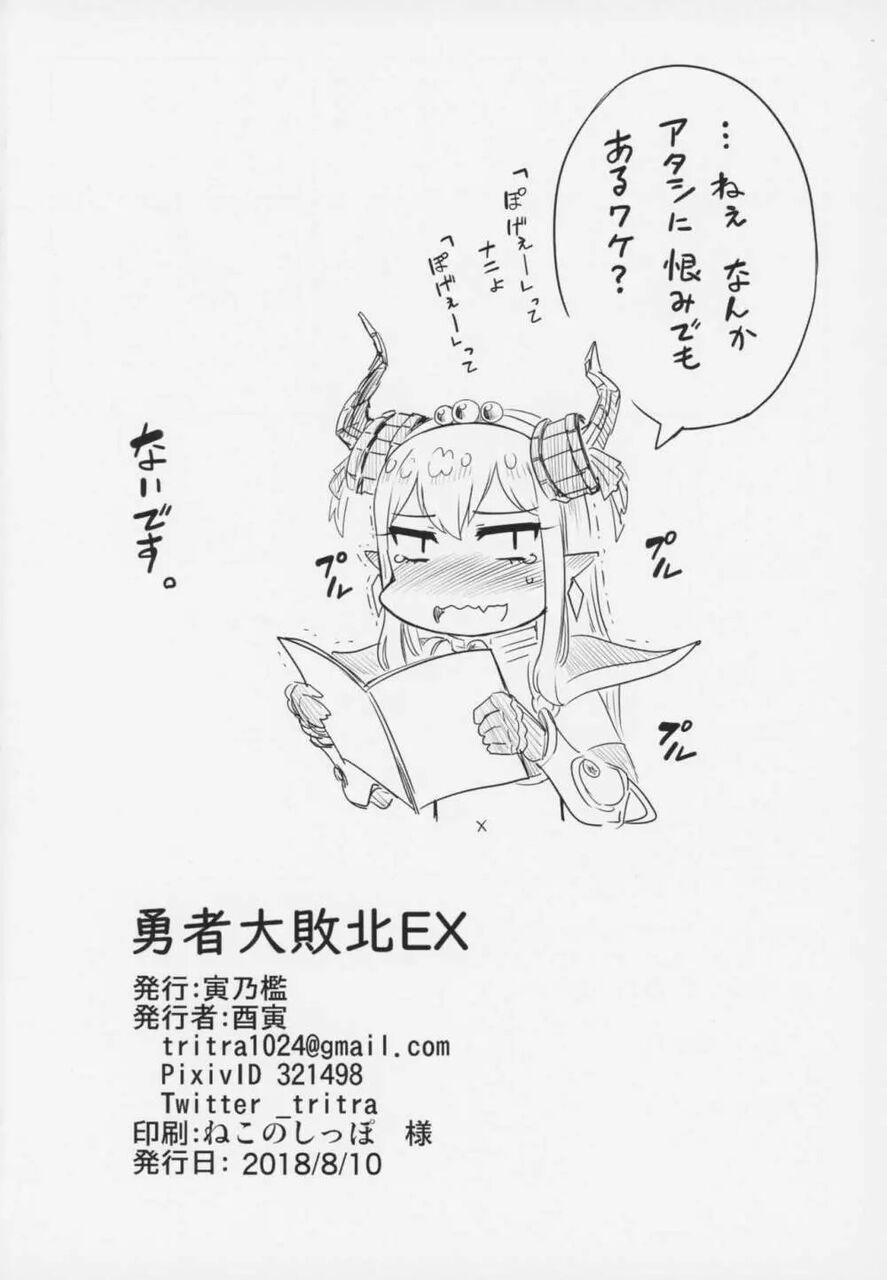 …ねぇ なんか
アタシに 恨みでも
あるワケ?
「ぽげぇー」って
ナニよ
「ぽげぇー」って
ないです。
プル
プル
プル
プル
プル
プル
勇者大敗北EX
発行:寅乃檻
発行者:酉寅
tritra1024@gmail.com
PixivID 321498
Twitter _tritra
印刷:ねこのしっぽ 様
発行日: 2018/8/10